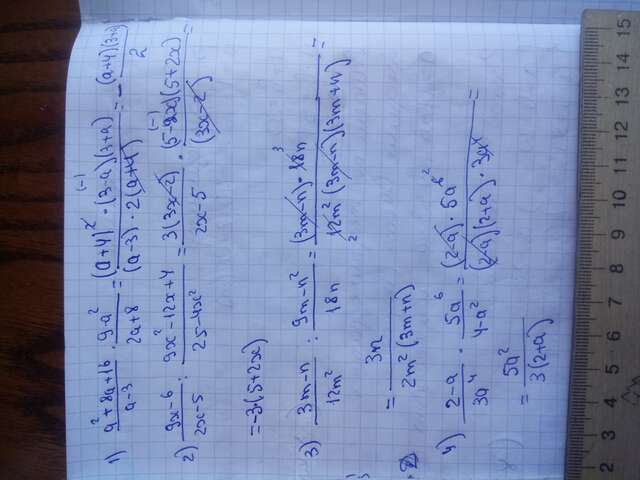 1) (a²+8a+16)/(a-3) · (9-a²)/(2a+8) = ((a+4)² · (3-a)(3+a))/((a-3) · 2(a+4)) (-1) = -((a+4)(3+a))/2
2) (9x-6)/(2x-5) : (9x²-12x+4)/(25-4x²) = (3(3x-2))/(2x-5) · ((5-2x)(5+2x))/(3x-2) (-1) =
= -3·(5+2x)
3) (3m-n)/(12m²) : (9m-n²)/(18n) = ((3m-n) · 18n 3)/(12m² 2 (3m-n)(3m+n)) =
= 3n/(2m²(3m+n))
4) (2-a)/(3a⁴) · (5a⁶)/(4-a²) = ((2-a) · 5a⁶ ²)/((2-a)(2+a) · 3a⁴) =
= 5a²/(3(2+a))
2 3 4 5 6 7 8 9 10 11 12 13 14 15